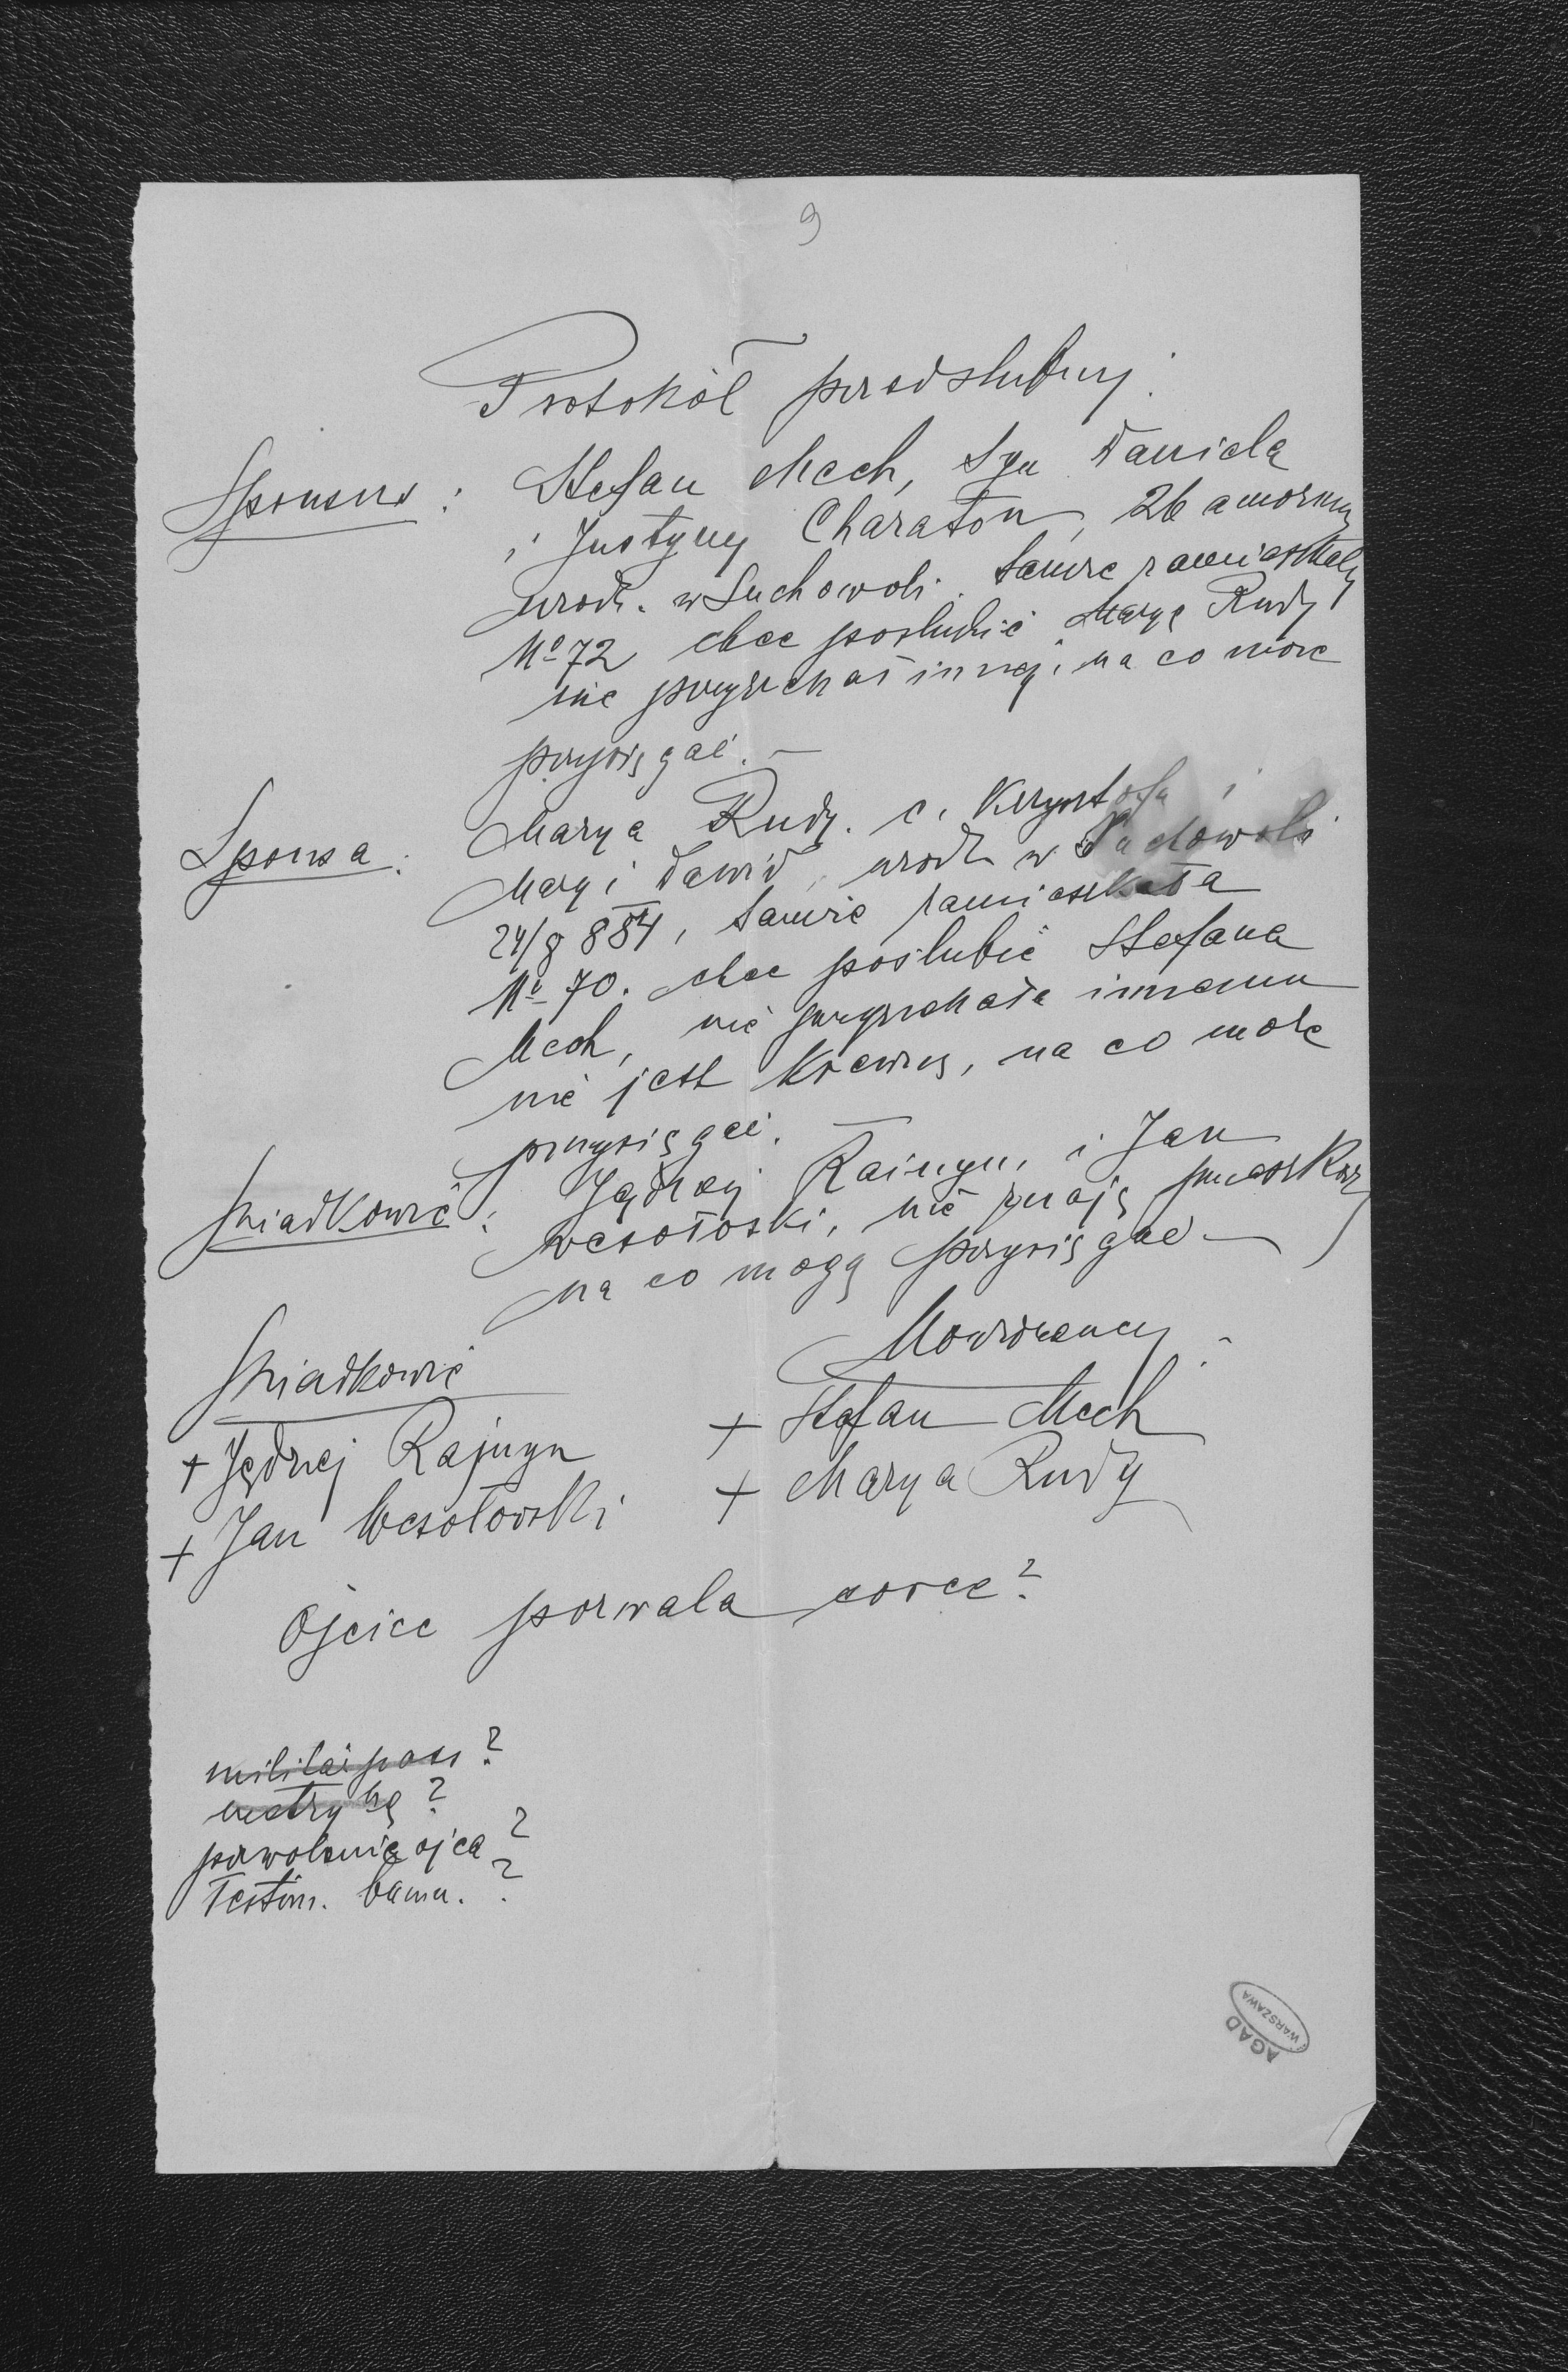 9
Protokół przedślubny.
Sponsus: Stefan Mech, syn Daniela
i Justyny Charaton, 26
urodz. w Suchowoli. tamże zamieszkały
No 72 chce poślubić Maryę Rudy
nie przyrzekał innej, na co może
przysięgać. —
Sponsa: Marya Rudy. c. Krzysztofa i
Maryi Dawid, urodz w Suchowoli
24/8 884, tamże zamieszkała
No 70. chce poślubić Stefana
Mech, nie przyrzekała innemu
nie jest krewną, na co może
przysięgać. —
Świadkowie: Jędrzej Rajngn, i Jan
Wesołoski, nie znają przeszkoz
na co mogą przysięgać —
Świadkowie
Nowożeńcy:
+ Jędrzej Rajngn
+ Stefan Mech
+ Jan Wesołowski
+ Marya Rudy
Ojciec pozwala corce?
militärpass?
metrykę?
pozwolenie ojca?
Testim. bann.?
AGAD
WARSZAWA